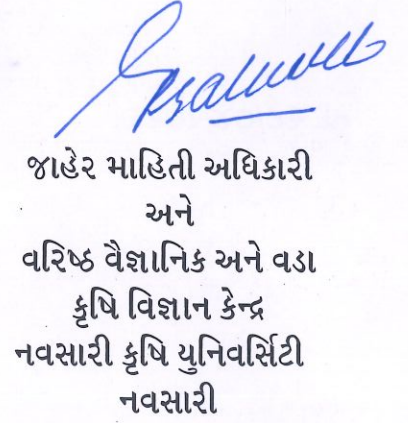 જાહેર માહિતી અધિકારી
અને
વરિષ્ઠ વૈજ્ઞાનિક અને વડા
કૃષિ વિજ્ઞાન કેન્દ્ર
નવસારી કૃષિ યુનિવર્સિટી
નવસારી